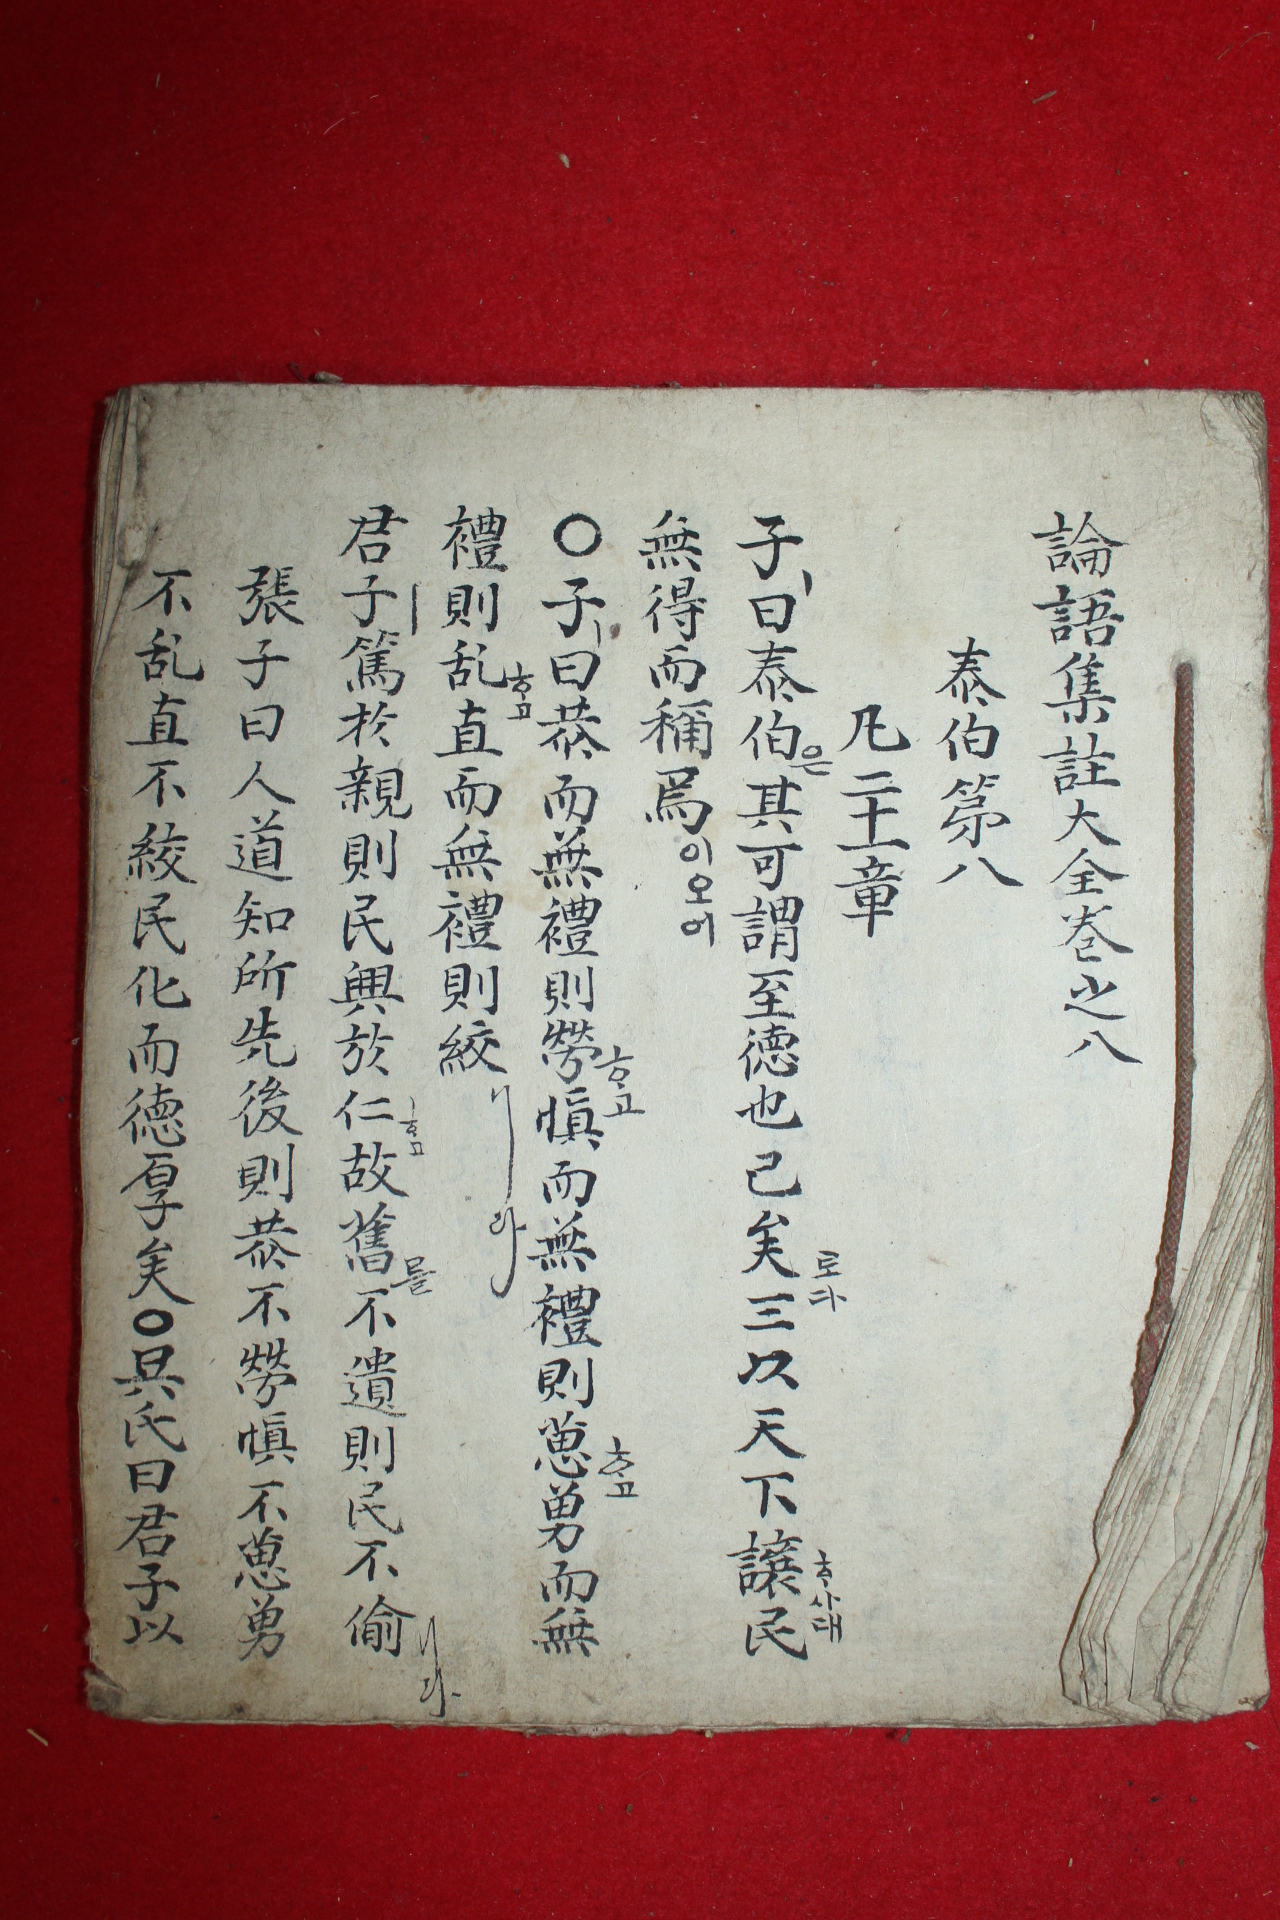 論語集註大全卷之八
泰伯第八
凡二十一章
子ㅣ曰泰伯은其可謂至德也已矣로다三以天下讓ᄒᆞ사대民
無得而稱焉이오어
○子ㅣ曰恭而無禮則勞ᄒᆞ고愼而無禮則葸ᄒᆞ고勇而無
禮則乱ᄒᆞ고直而無禮則絞ㅣ니라
君子ㅣ篤於親則民興於仁ᄒᆞ고故舊를不遺則民不偷ㅣ니라
張子曰人道知所先後則恭不勞愼不葸勇
不乱直不絞民化而德厚矣○吳氏曰君子以